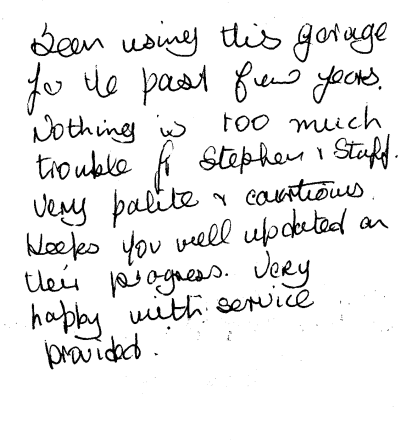 Been using this garage
for the past few years.
Nothing is too much
trouble for Stephen & Staff.
Very polite & courteous.
Keeps you well updated on
their progress. Very
happy with service
provided.